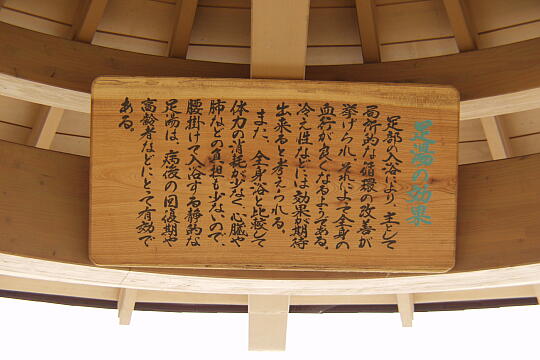 足湯の効果
足部入浴により、主として
局所的な循環の改善が
挙げられ、それによって全身の
血行が良くなるようである。
冷え性などには効果が期待
出来ると考えられる。
また、全身浴と比較して
体力の消耗が少なく、心臓や
肺などの負担も少ないので、
腰掛けて入浴する静的な
足湯は、病後の回復期や
高齢者などにとって有効で
ある。